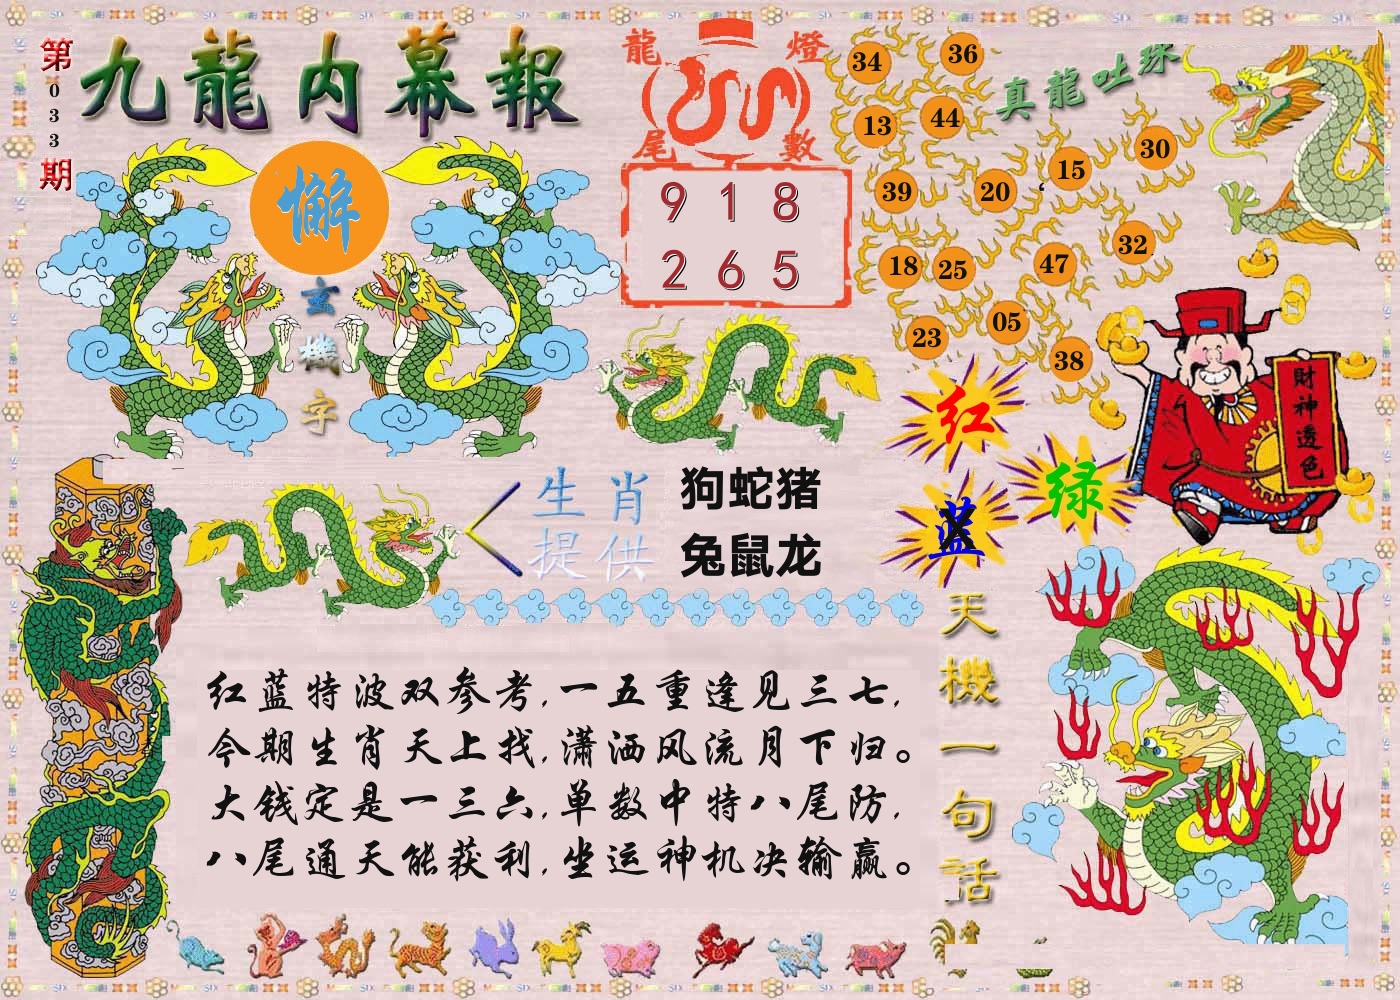 第033期
九龍内幕報
懈
玄機字
龍燈
尾數
9 1 8
2 6 5
真龍吐珠
34
36
13
44
39
20
15
30
18
25
47
32
23
05
38
財神透色
红
绿
蓝
生肖
提供
狗蛇猪
兔鼠龙
红蓝特波双参考,一五重逢见三七,
今期生肖天上找,潇洒风流月下归。
大钱定是一三六,单数中特八尾防,
八尾通天能获利,坐运神机决输赢。
天機一句話